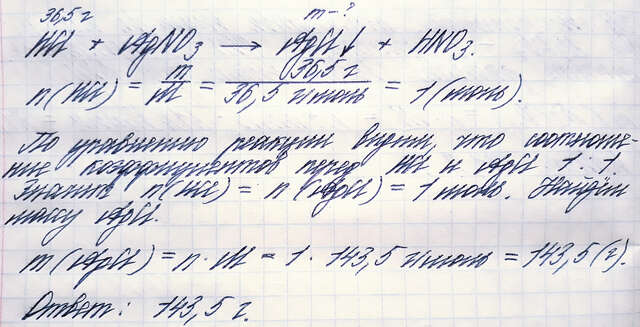 36,5 г m - ?
HCl + AgNO₃ → AgCl↓ + HNO₃.
n(HCl) = m/M = 36,5 г/36,5 г/моль = 1 (моль).
По уравнению реакции видим, что соотноше-
ние коэффициентов перед HCl и AgCl 1 : 1.
Значит n(HCl) = n(AgCl) = 1 моль. Найдём
массу AgCl.
m(AgCl) = n · M = 1 · 143,5 г/моль = 143,5 (г).
Ответ: 143,5 г.